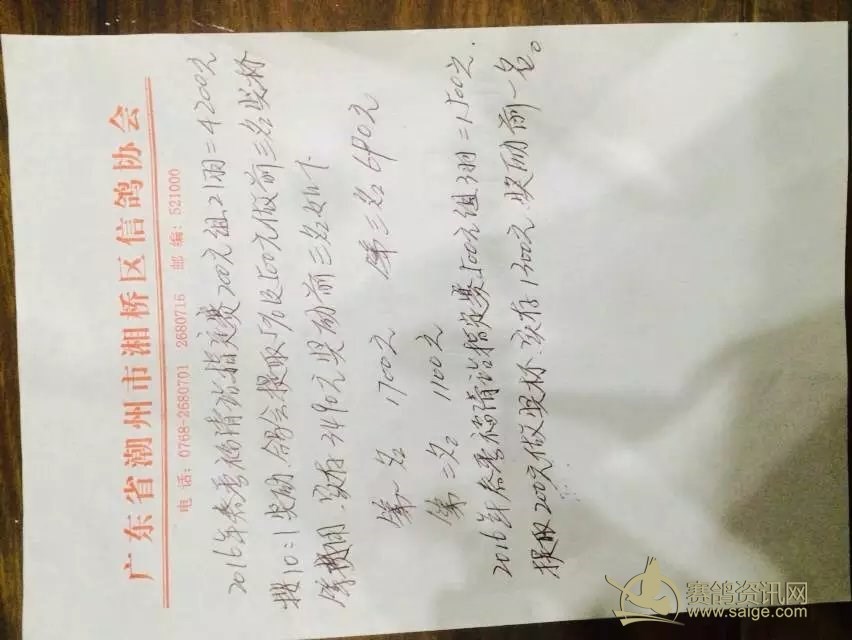 广东省潮州市湘桥区信鸽协会
电 话: 0768-2680701 2680716 邮 编: 521000
2016年春季福清站指定赛200元组21羽=4200元
按10:1奖励.鸽会提取5%及500元做前三名奖杯
等费用.实存3490元奖励前三名如下
第一名 1700元 第三名690元
第二名 1100元
2016年春季福清站指定赛500元组3羽=1500元.
提取200元做奖杯.实存1300元.奖励前一名。
赛鸽资讯网
www.saige.com